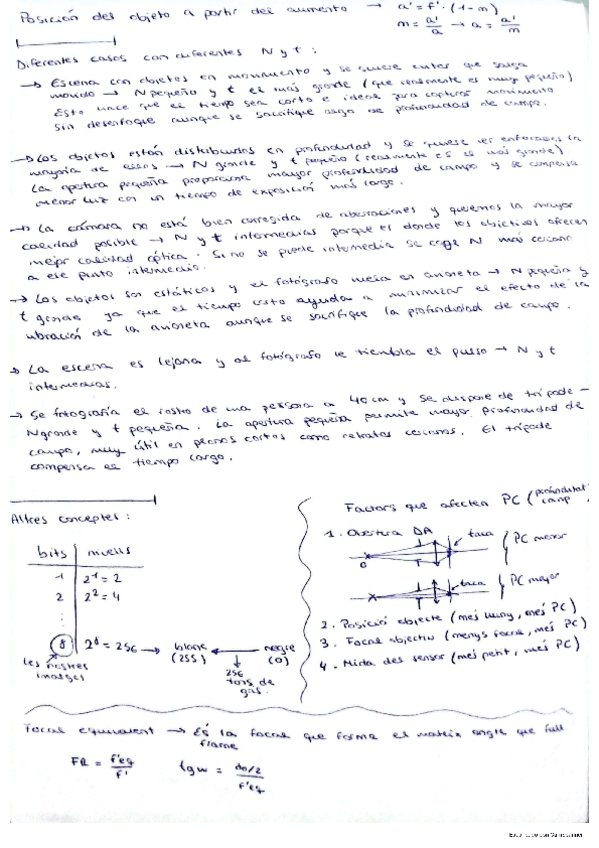 Posición del objeto a partir del aumento → a' = f' · (1-m)
m = a'/a → a = a'/m
Diferentes casos con diferentes N y t :
→ Escena con objetos en movimiento y se quiere evitar que salga
movido → N pequeño y t el más grande (que realmente es muy pequeño)
Esto hace que el tiempo sea corto e ideal para capturar movimiento
sin desenfoque aunque se sacrifique algo de profundidad de campo.
→ Los objetos están distribuidos en profundidad y se quiere ver enfocados la
mayoría de ellos → N grande y t pequeño (realmente es el más grande)
La apertura pequeña proporciona mayor profundidad de campo y se compensa
menor luz con un tiempo de exposición más largo.
→ La cámara no está bien corregida de aberraciones y queremos la mayor
calidad posible → N y t intermedias porque es donde los objetivos ofrecen
mejor calidad óptica. Si no se puede intermedia se coge N más cercano
a ese punto intermedio.
→ Los objetos son estáticos y el fotógrafo viaja en avioneta → N pequeña y
t grande ya que el tiempo corto ayuda a minimizar el efecto de la
vibración de la avioneta aunque se sacrifique la profundidad de campo.
→ La escena es lejana y al fotógrafo le tiembla el pulso → N y t
intermedias.
→ Se fotografía el rostro de una persona a 40cm y se dispone de trípode →
N grande y t pequeña. La apertura pequeña permite mayor profundidad de
campo, muy útil en planos cortos como retratos cercanos. El trípode
compensa el tiempo largo.
Altres conceptes :
bits nivells
1 2¹ = 2
2 2² = 4
8 2⁸ = 256 → blanc (255) ← negre (0)
les nostres imatges
256 tons de gris
Factors que afecten PC (profunditat camp)
1. Obertura DA
taca PC menor
O
taca PC major
2. Posició objecte (més lluny, més PC)
3. Focal objectiu (menys focal, més PC)
4. Mida del sensor (més petit, més PC)
Focal equivalent → És la focal que forma el mateix angle que full
frame
FR = f'eq/f' tg w = do/2 / f'eq